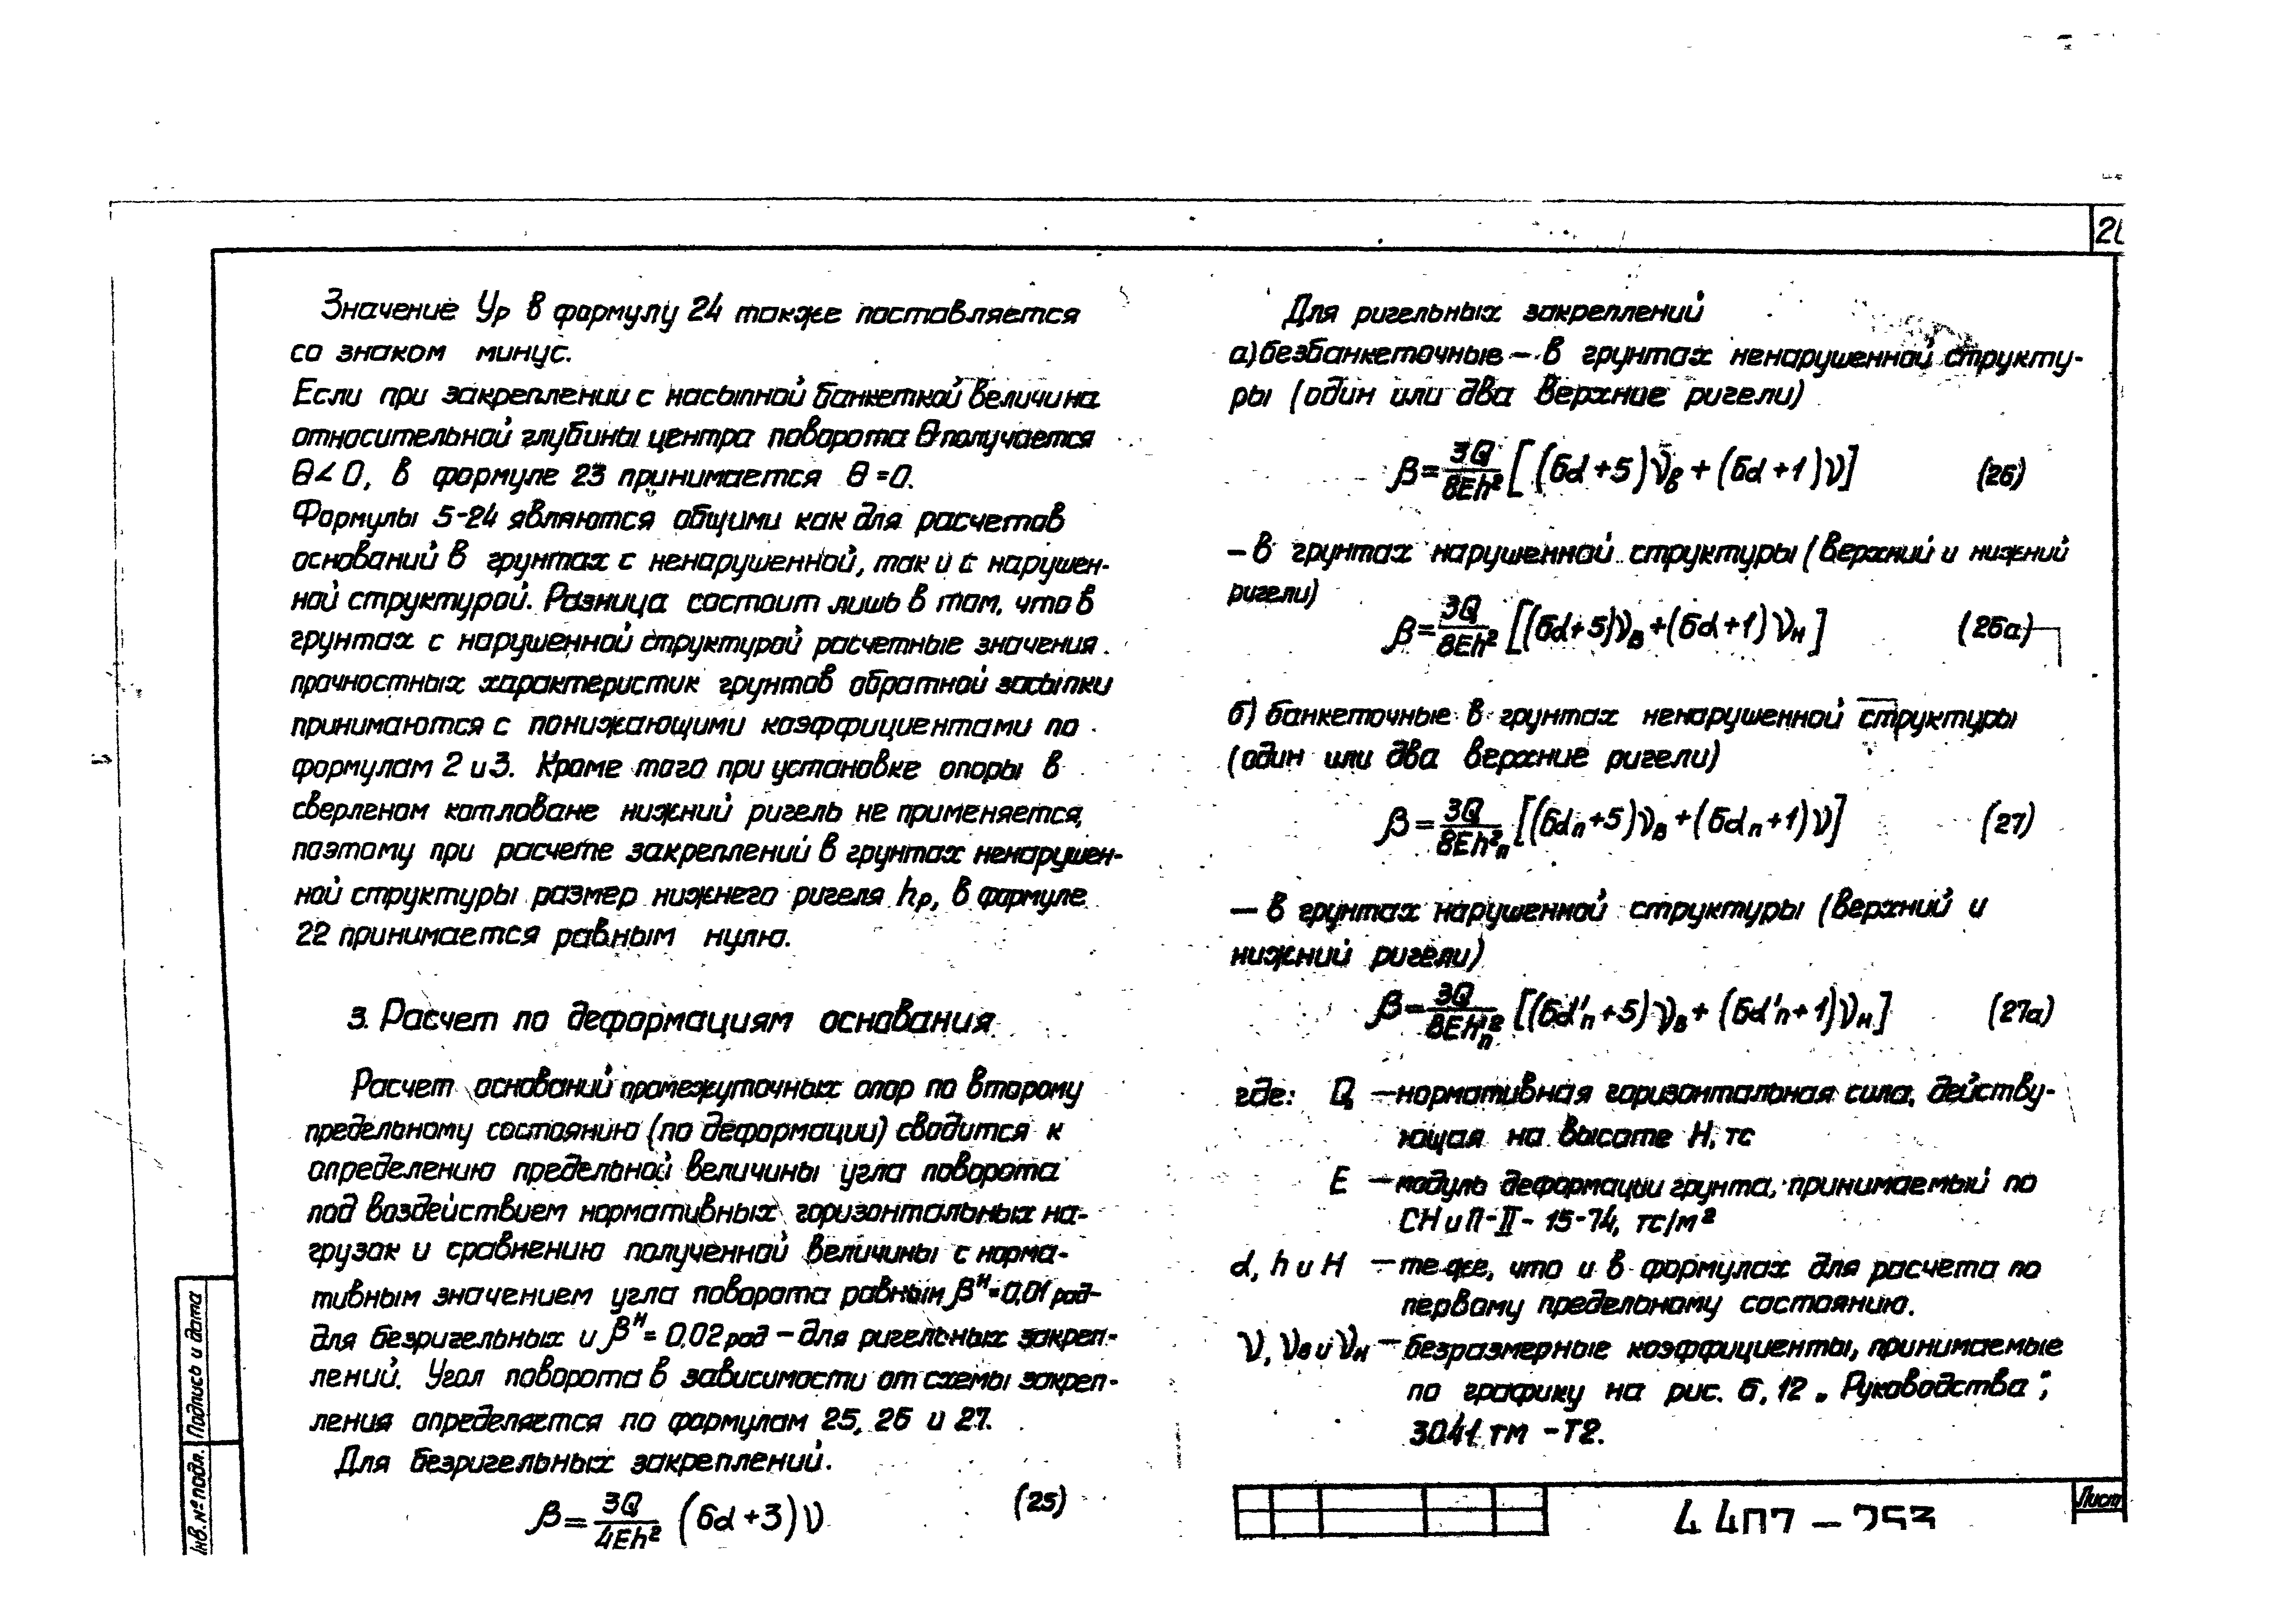 Значение Ур в формулу 24 также поставляется
со знаком минус.
Если при закреплении с насыпной банкеткой величина
относительной глубины центра поворота θ получается
θ < 0, в формуле 23 принимается θ = 0.
Формулы 5-24 являются общими как для расчетов
оснований в грунтах с ненарушенной, так и с нарушен-
ной структурой. Разница состоит лишь в том, что в
грунтах с нарушенной структурой расчетные значения
прочностных характеристик грунтов обратной засыпки
принимаются с понижающими коэффициентами по
формулам 2 и 3. Кроме того при установке опоры в
сверленом котловане нижний ригель не применяется,
поэтому при расчете закреплений в грунтах ненарушен-
ной структуры размер нижнего ригеля hр, в формуле
22 принимается равным нулю.
3. Расчет по деформациям основания
Расчет оснований промежуточных опор по второму
предельному состоянию (по деформации) сводится к
определению предельной величины угла поворота
под воздействием нормативных горизонтальных на-
грузок и сравнению полученной величины с норма-
тивным значением угла поворота равным βᴴ = 0,01 рад-
для безригельных и βᴴ = 0,02 рад – для ригельных закреп-
лений. Угол поворота в зависимости от схемы закреп-
ления определяется по формулам 25, 26 и 27.
Для безригельных закреплений.
β = 3Q/4Eh² (6α + 3) ν (25)
Для ригельных закреплений
а) безбанкеточные – в грунтах ненарушенной структу-
ры (один или два верхние ригели)
β = 3Q/8Eh² [(6α + 5) νв + (6α + 1) ν] (26)
– в грунтах нарушенной структуры (верхний и нижний
ригели)
β = 3Q/8Eh² [(6α + 5) νв + (6α + 1) νн] (26а)
б) банкеточные в грунтах ненарушенной структуры
(один или два верхние ригели)
β = 3Q/8Eh²п [(6αп + 5) νв + (6αп + 1) ν] (27)
– в грунтах нарушенной структуры (верхний и
нижний ригели)
β = 3Q/8Eh'²п [(6α'п + 5) νв + (6α'п + 1) νн] (27а)
где: Q – нормативная горизонтальная сила, действу-
ющая на высоте Н, тс
E – модуль деформации грунта, принимаемый по
СНиП-II-15-74, тс/м²
α, h и Н – те же, что и в формулах для расчета по
первому предельному состоянию.
ν, νв и νн – безразмерные коэффициенты, принимаемые
по графику на рис. 6, 12 „Руководства";
3041 тм -Т2.
Подпись и дата
Инв. № подл.
Лист